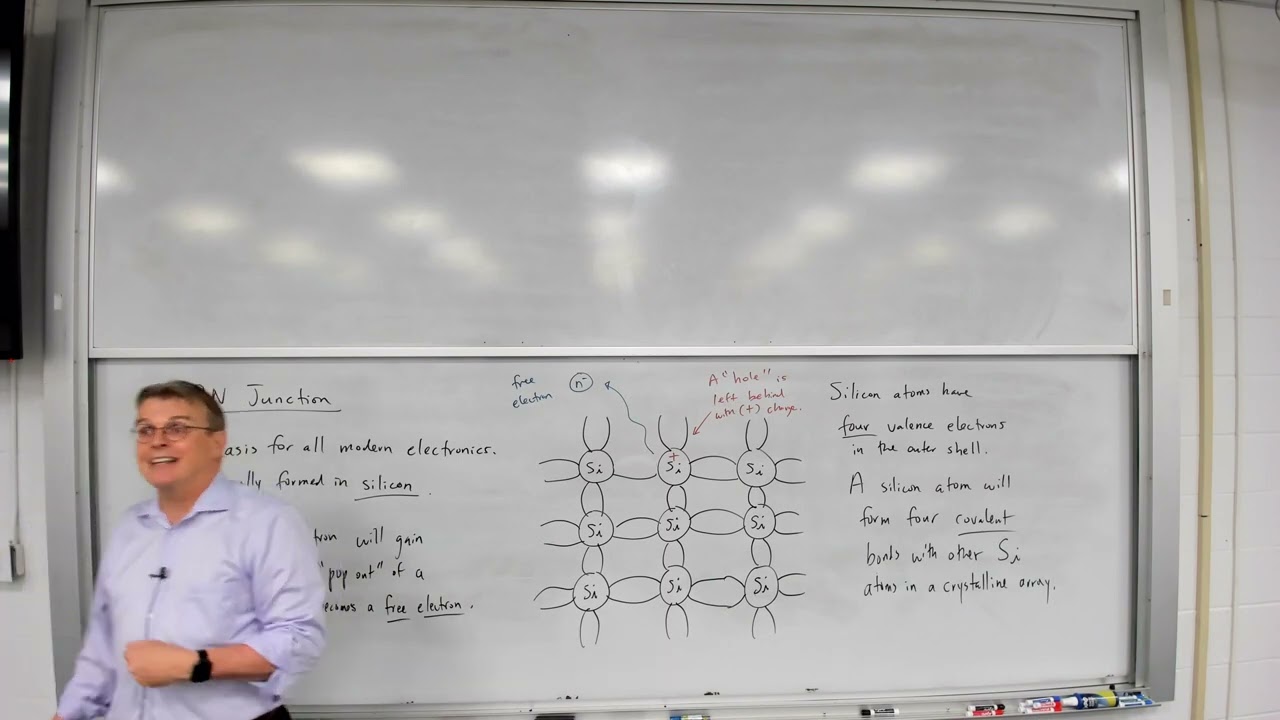 N Junction
asis for all modern electronics.
lly formed in silicon.
tron will gain
"pop out" of a
ecomes a free electron.
free
electron
n⁻
A "hole" is
left behind
with (+) charge.
+
Si Si Si
Si Si Si
Si Si Si
Silicon atoms have
four valence electrons
in the outer shell.
A silicon atom will
form four covalent
bonds with other Si
atoms in a crystalline array.